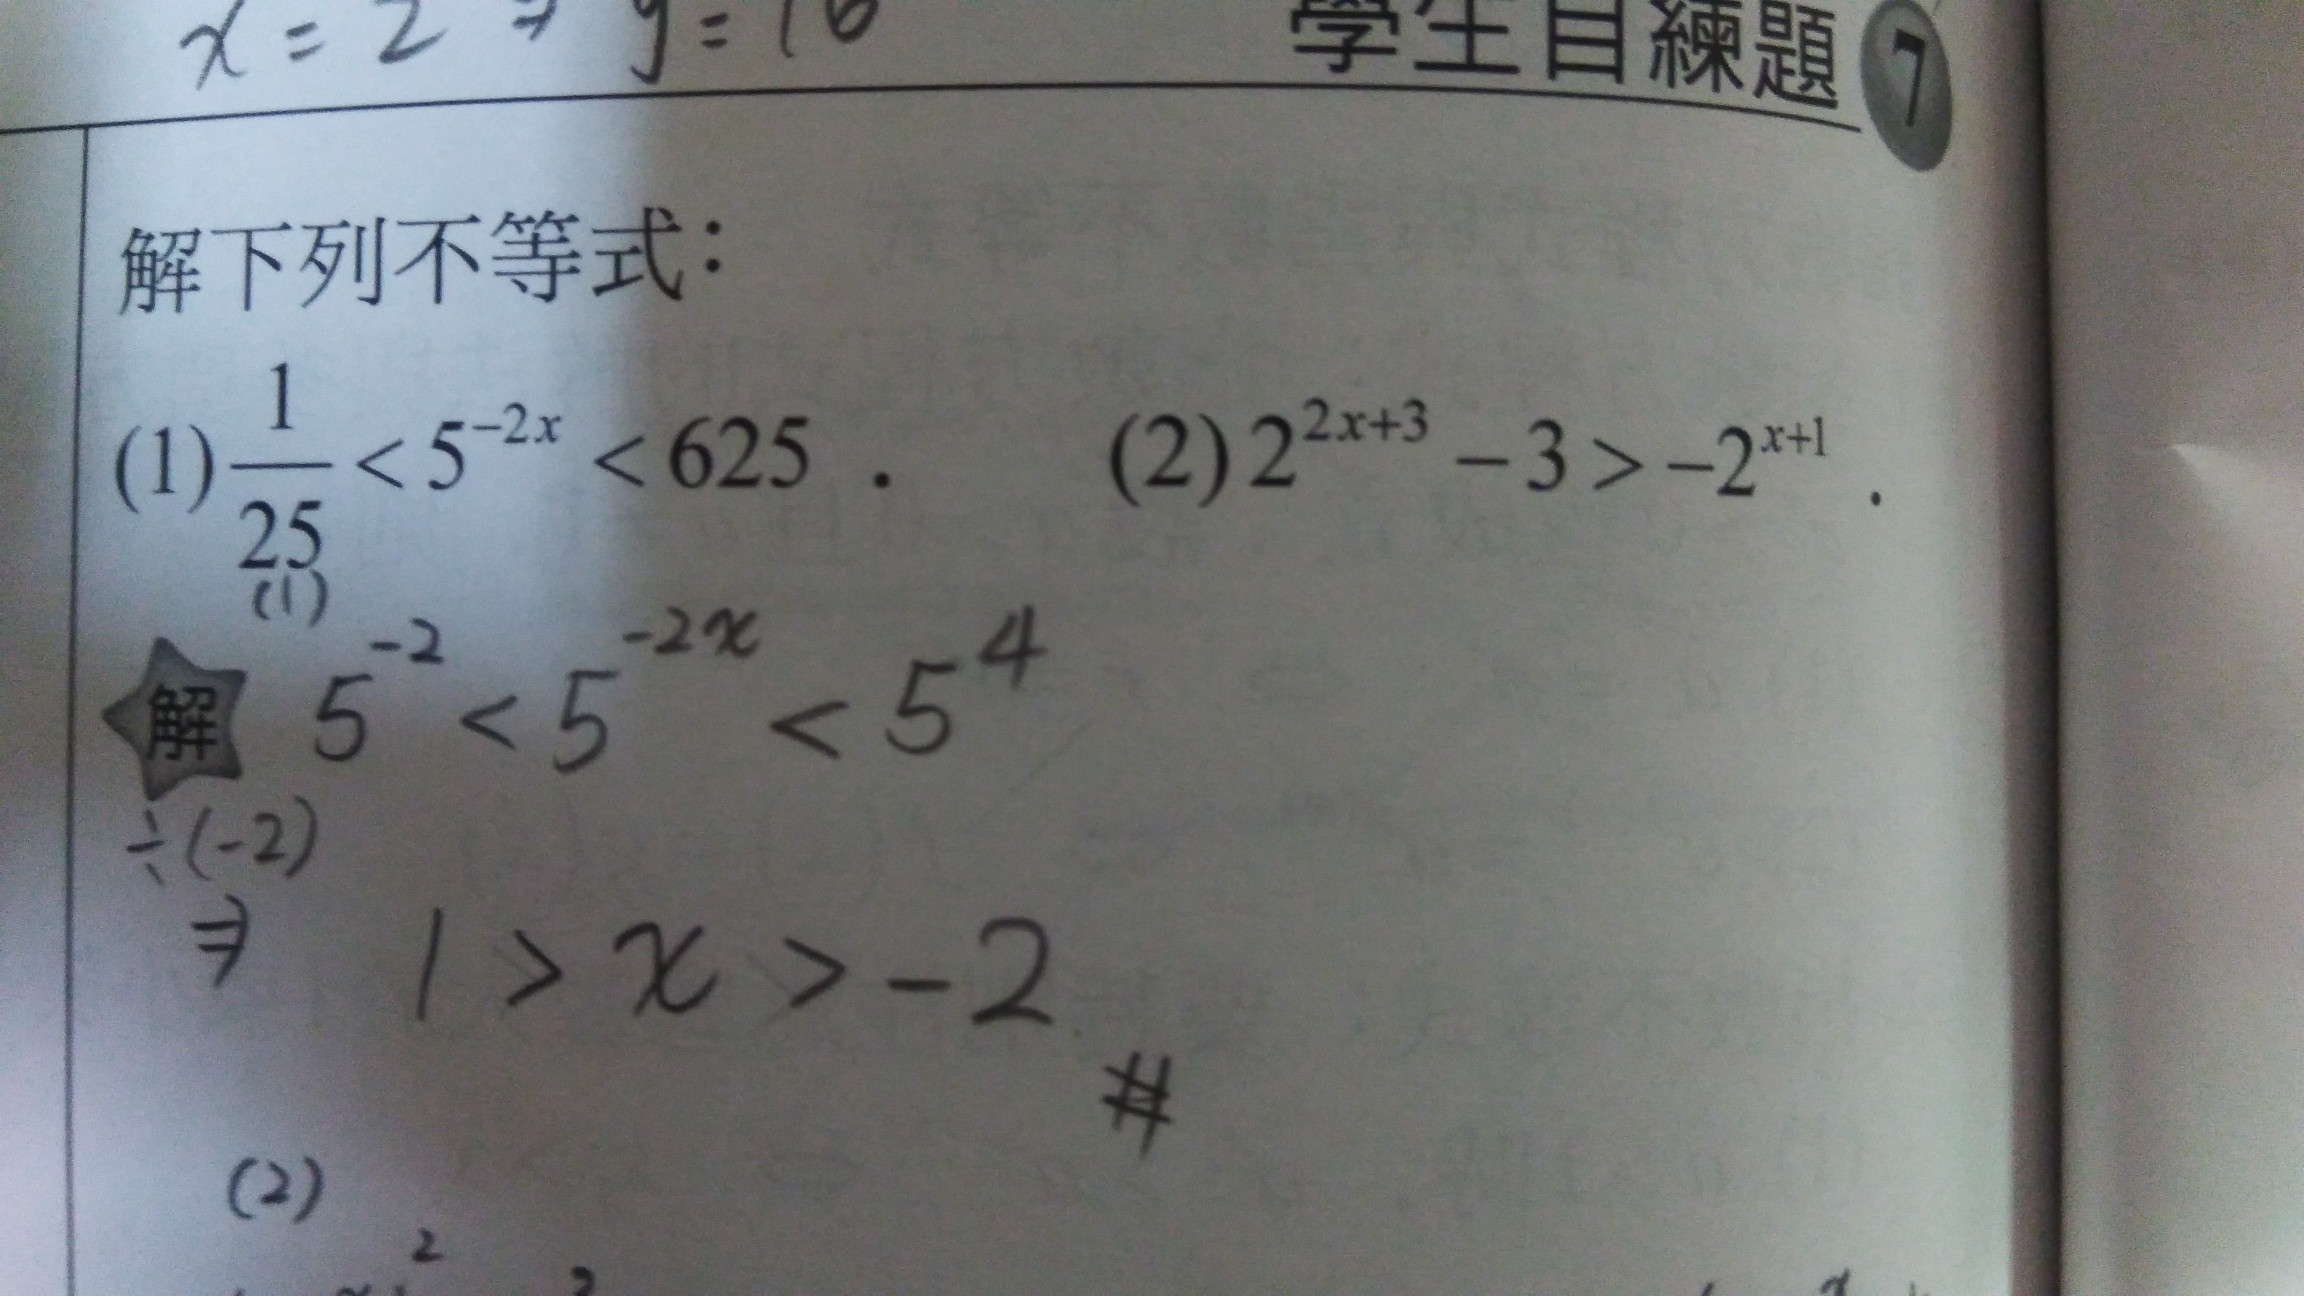 x = 2 ⇒ y = 16
學生自練題 7
解下列不等式：
(1) 1/25 < 5^{-2x} < 625 . (2) 2^{2x+3} - 3 > -2^{x+1} .
(1)
解 5^{-2} < 5^{-2x} < 5^4
÷(-2)
⇒ 1 > x > -2 #
(2)